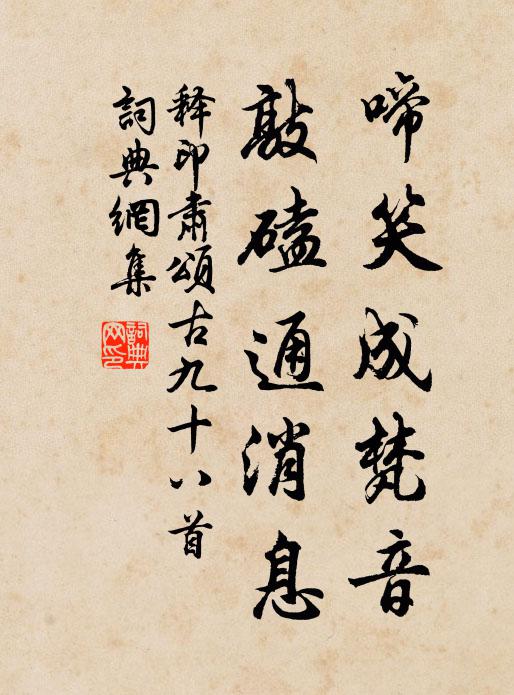 啼笑成梵音
敲磕通消息
释印肃頌古九十八首
詞典網集
詞典网印